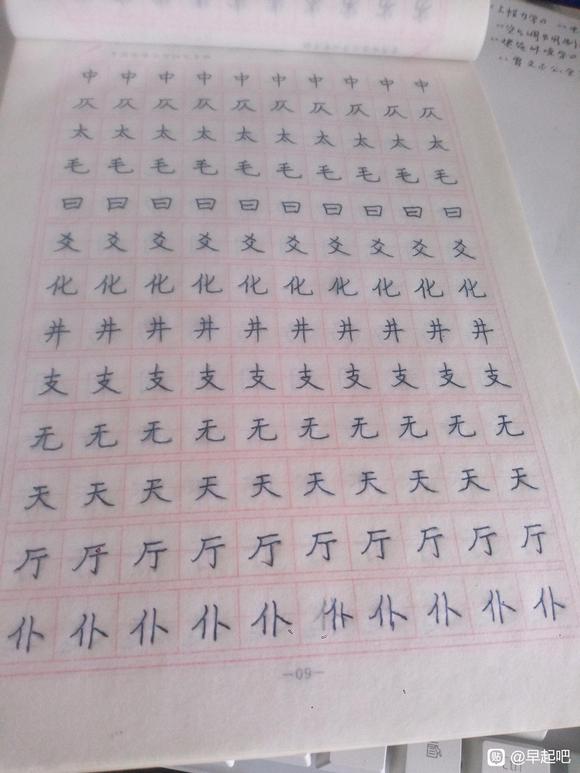 中 中 中 中 中 中 中 中 中 中
仄 仄 仄 仄 仄 仄 仄 仄 仄 仄
太 太 太 太 太 太 太 太 太 太
毛 毛 毛 毛 毛 毛 毛 毛 毛 毛
曰 曰 曰 曰 曰 曰 曰 曰 曰 曰
爻 爻 爻 爻 爻 爻 爻 爻 爻 爻
化 化 化 化 化 化 化 化 化 化
井 井 井 井 井 井 井 井 井 井
支 支 支 支 支 支 支 支 支 支
无 无 无 无 无 无 无 无 无 无
天 天 天 天 天 天 天 天 天 天
厅 厅 厅 厅 厅 厅 厅 厅 厅 厅
仆 仆 仆 仆 仆 仆 仆 仆 仆 仆
—09—
贴 @早起吧